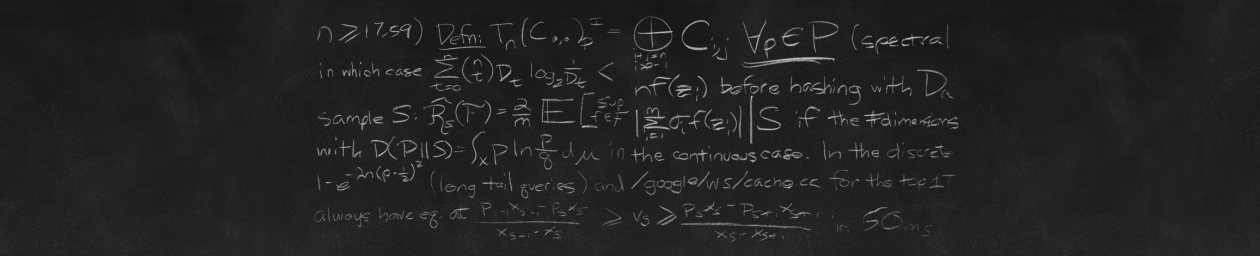 n ≥ 17.59) Defn: Tₙ(C.,.)ᵇᴵ = ⊕ Cᵢ,ⱼ ∀p∈P (spectral
in which case Σ (ⁿₜ) Dₜ log₂ 1/Dₜ < nf(zᵢ) before hashing with D
sample S: R̂ₛ(F) = 2/m E[sup f∈F |Σ σᵢf(zᵢ)| | S if the #dimensions
with D(P||S) = ∫ₓ p ln p/q dμ in the continuous case. In the discrete
1-e^-2n(p-½)² (long tail queries) and /google/ws/cache.cc for the top 1T
always have eq. at ≥ vₛ ≥ in 50ms